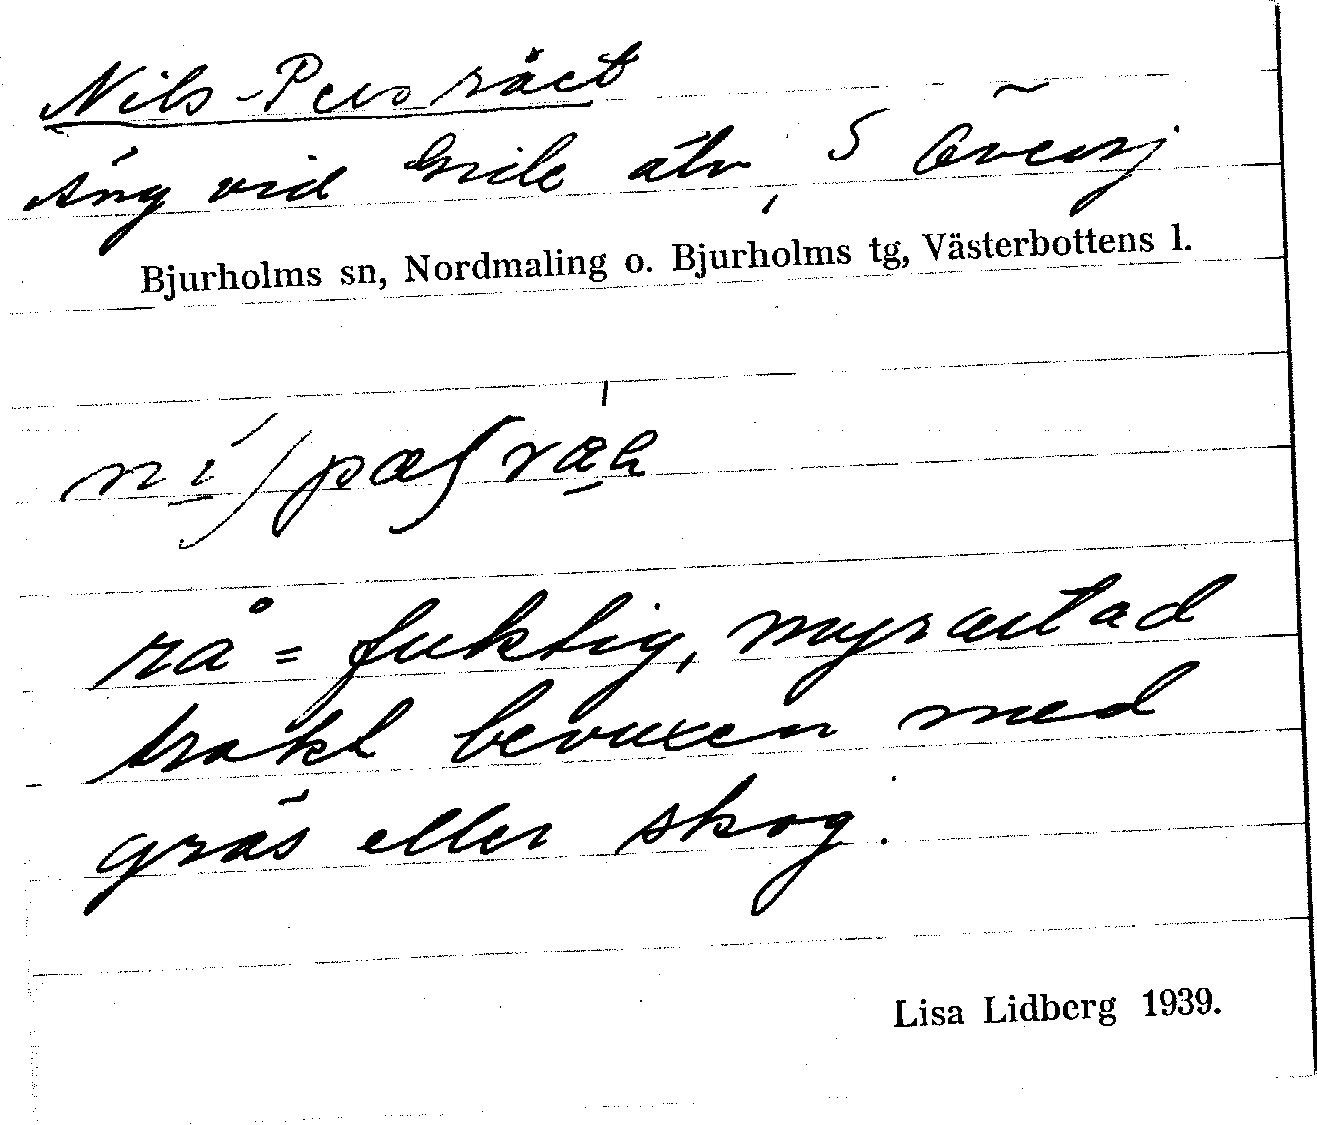 Nils-Persrået
Äng vid Grile ån, S Överj
Bjurholms sn, Nordmaling o. Bjurholms tg, Västerbottens l.
rå = fuktig, myrartad
trakt bevuxen med
gräs eller skog.
Lisa Lidberg 1939.